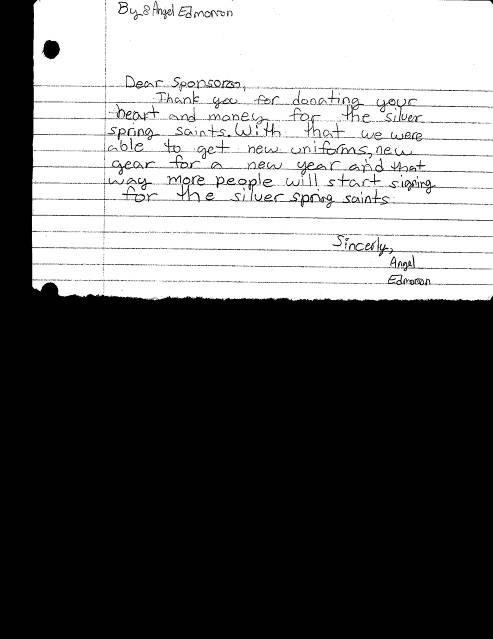 By 8 Angel Edmonson
Dear Sponsores,
Thank you for donating your
heart and money for the silver
spring saints. With that we were
able to get new uniforms, new
gear for a new year and that
way more people will start signing
for the silver spring saints
Sincerly,
Angel
Edmonson